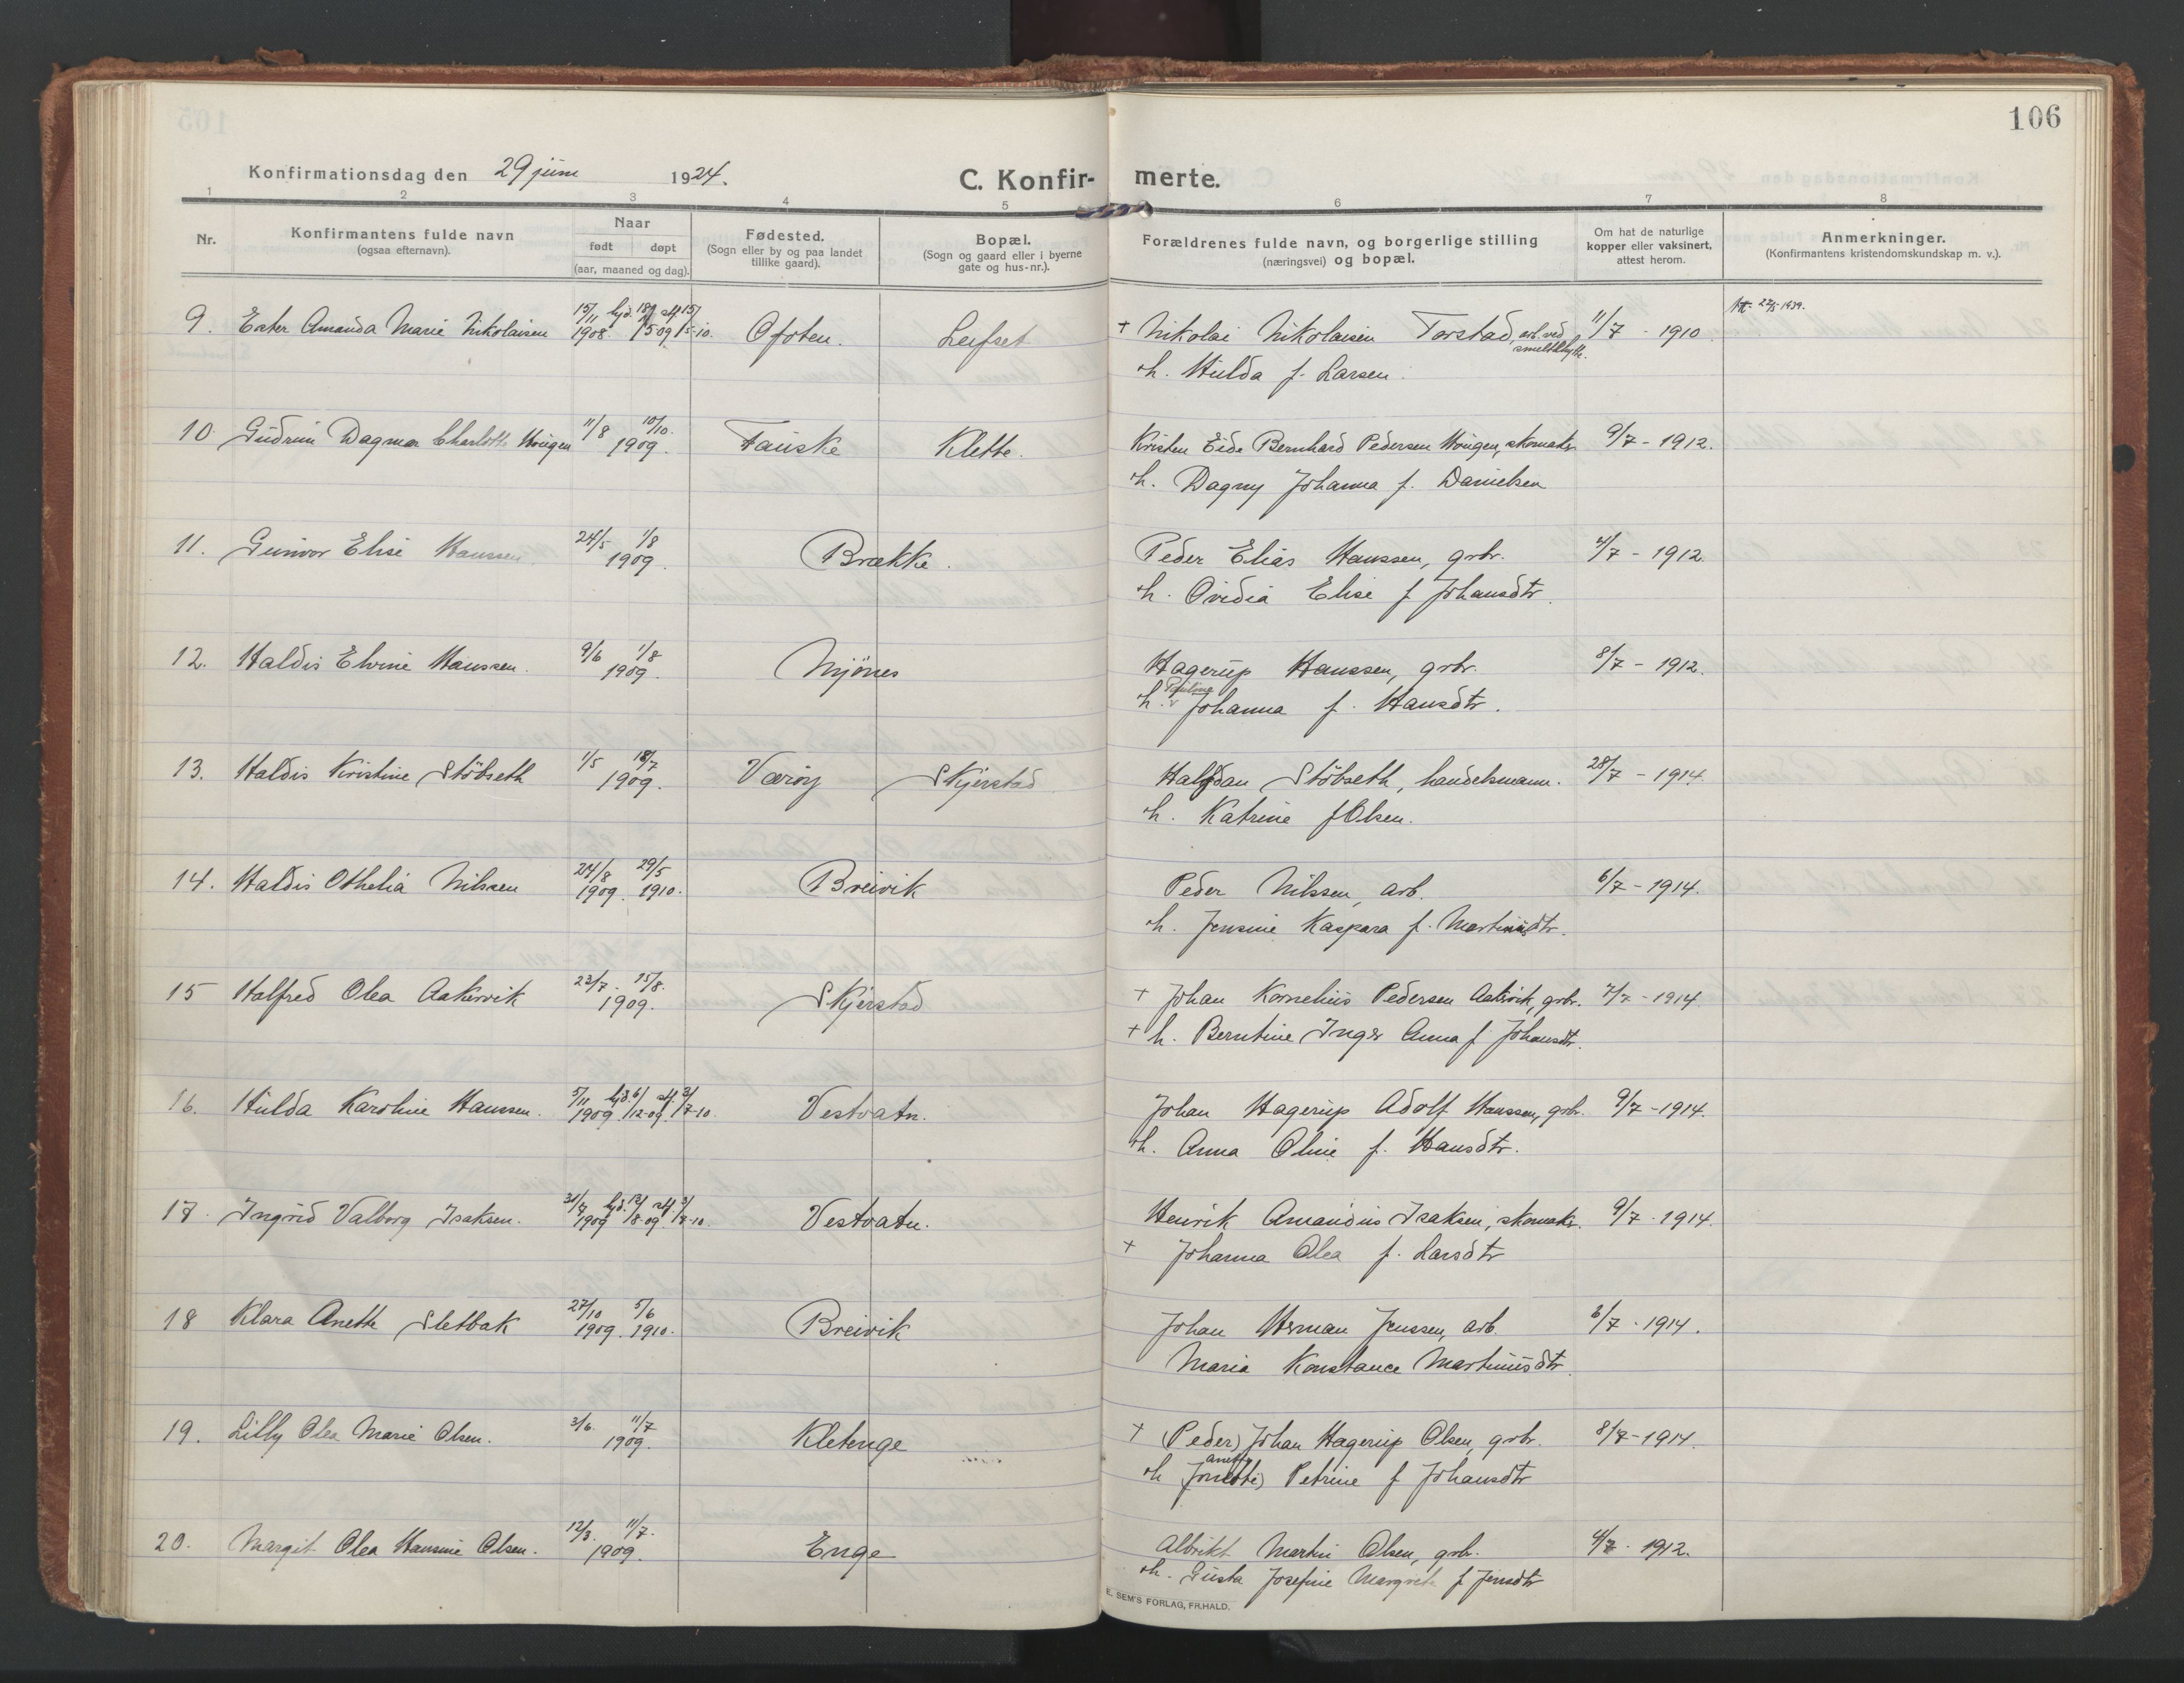 106
Konfirmationsdag den 29 juni 1924.
C. Konfir- merte.
1 2 3 4 5 6 7 8
Nr.
Konfirmantens fulde navn
(ogsaa efternavn).
Naar
født døpt
(aar, maaned og dag).
Fødested.
(Sogn eller by og paa landet
tillike gaard).
Bopæl.
(Sogn og gaard eller i byerne
gate og hus-nr.).
Forældrenes fulde navn, og borgerlige stilling
(næringsvei) og bopæl.
Om hat de naturlige
kopper eller vaksinert,
attest herom.
Anmerkninger.
(Konfirmantens kristendomskundskap m. v.).
9. Ester Amanda Marie Nikolaisen 15/11 1908. hjd. 18/5 09 stf. 15/5-10. Ofoten. Leifset + Nikolai Nikolaisen Torstad, arb. ved smeltehytte. 11/7 - 1910. 22/5 1939.
h. Hulda f. Larsen.
10. Gudrun Dagmar Charlotte Hougen 11/8 10/10. 1909. Fauske Klette. Kristen Eide Bernhard Pedersen Hougen, skomaker 9/7 - 1912.
h. Dagny Johanna f. Danielsen
11. Gunvor Elise Hanssen 24/5 1/8 1909. Brække. Peder Elias Hanssen, grbr. 4/7 - 1912.
h. Ovidia Elise f Johansdtr.
12. Haldis Elvine Hanssen. 9/6 1/8 1909. Mjönes Hagerup Hanssen, grbr. 8/7 - 1912.
h. Pauline Johanna f. Hansdtr.
13. Haldis Kristine Stöbseth 1/5 18/7 1909. Værøy Skjerstad Halfdan Stöbseth, handelsmann. 28/7 - 1914.
h. Katrine f Olsen.
14. Haldis Othelia Nilssen 24/8 1909. 29/5 1910. Breivik Peder Nilssen, arb. 6/7 - 1914.
h. Jensine Kaspara f. Martinusdtr.
15 Halfred Olea Aakervik 23/7. 15/8. 1909. Skjerstad + Johan Kornelius Pedersen Aakervik, grbr. 7/7 - 1914.
+ h. Berntine Inger Anna f. Johansdtr.
16. Hulda Karoline Hanssen. 5/11 1909 hjd. 6/12-09. stf. 3/7-10. Vestvatn. Johan Hagerup Adolf Hanssen, grbr. 9/7 - 1914.
h. Anna Oline f. Hansdtr.
17. Ingrid Valborg Isaksen. 31/7 1909 hjd. 12/8-09. stf. 3/7-10. Vestvatn. Henrik Amandus Isaksen, skomaker. 9/7 - 1914.
+ Johanna Olea f. Larsdtr
18 Klara Anette Sletbak 27/10 1909. 5/6 1910. Breivik Johan Herman Jenssen, arb. 6/7 - 1914.
Maria Konstance Martinusdtr.
19. Lilly Olea Marie Olsen. 3/6. 11/7 1909. Kletenge + (Peder) Johan Hagerup Olsen, grbr. 8/7 - 1914.
h Petrine f Johansdtr
20. Margit Olea Hansine Olsen. 12/3. 11/7. 1909. Enge Albrikt Martin Olsen, grbr. 4/7 - 1912.
h. Gusta Josefine Margrete f Jensdtr
E. SEM'S FORLAG, FR.HALD.